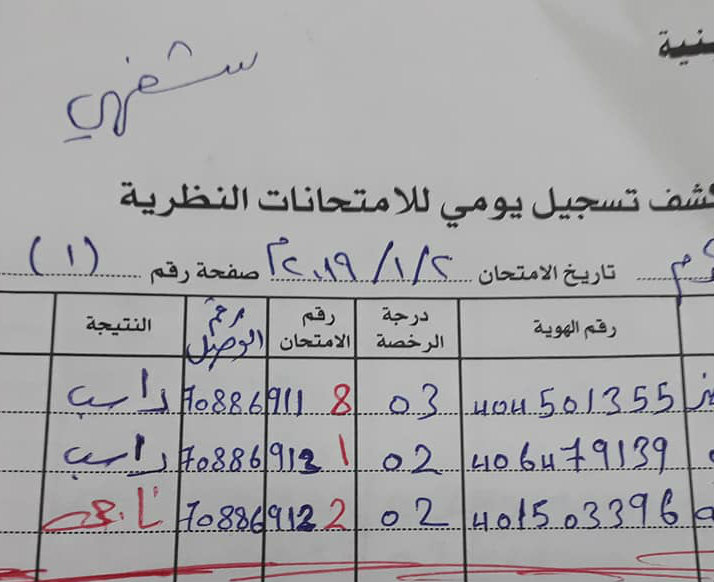 شفهي
كشف تسجيل يومي للامتحانات النظرية
تاريخ الامتحان ٢/١/٢٠١٩م صفحة رقم (١)
رقم الهوية درجة الرخصة رقم الامتحان رقم الوصل النتيجة
404501355 03 8 70886911 راسب
406479139 02 1 70886912 راسب
401503396 02 2 70886912 ناجح